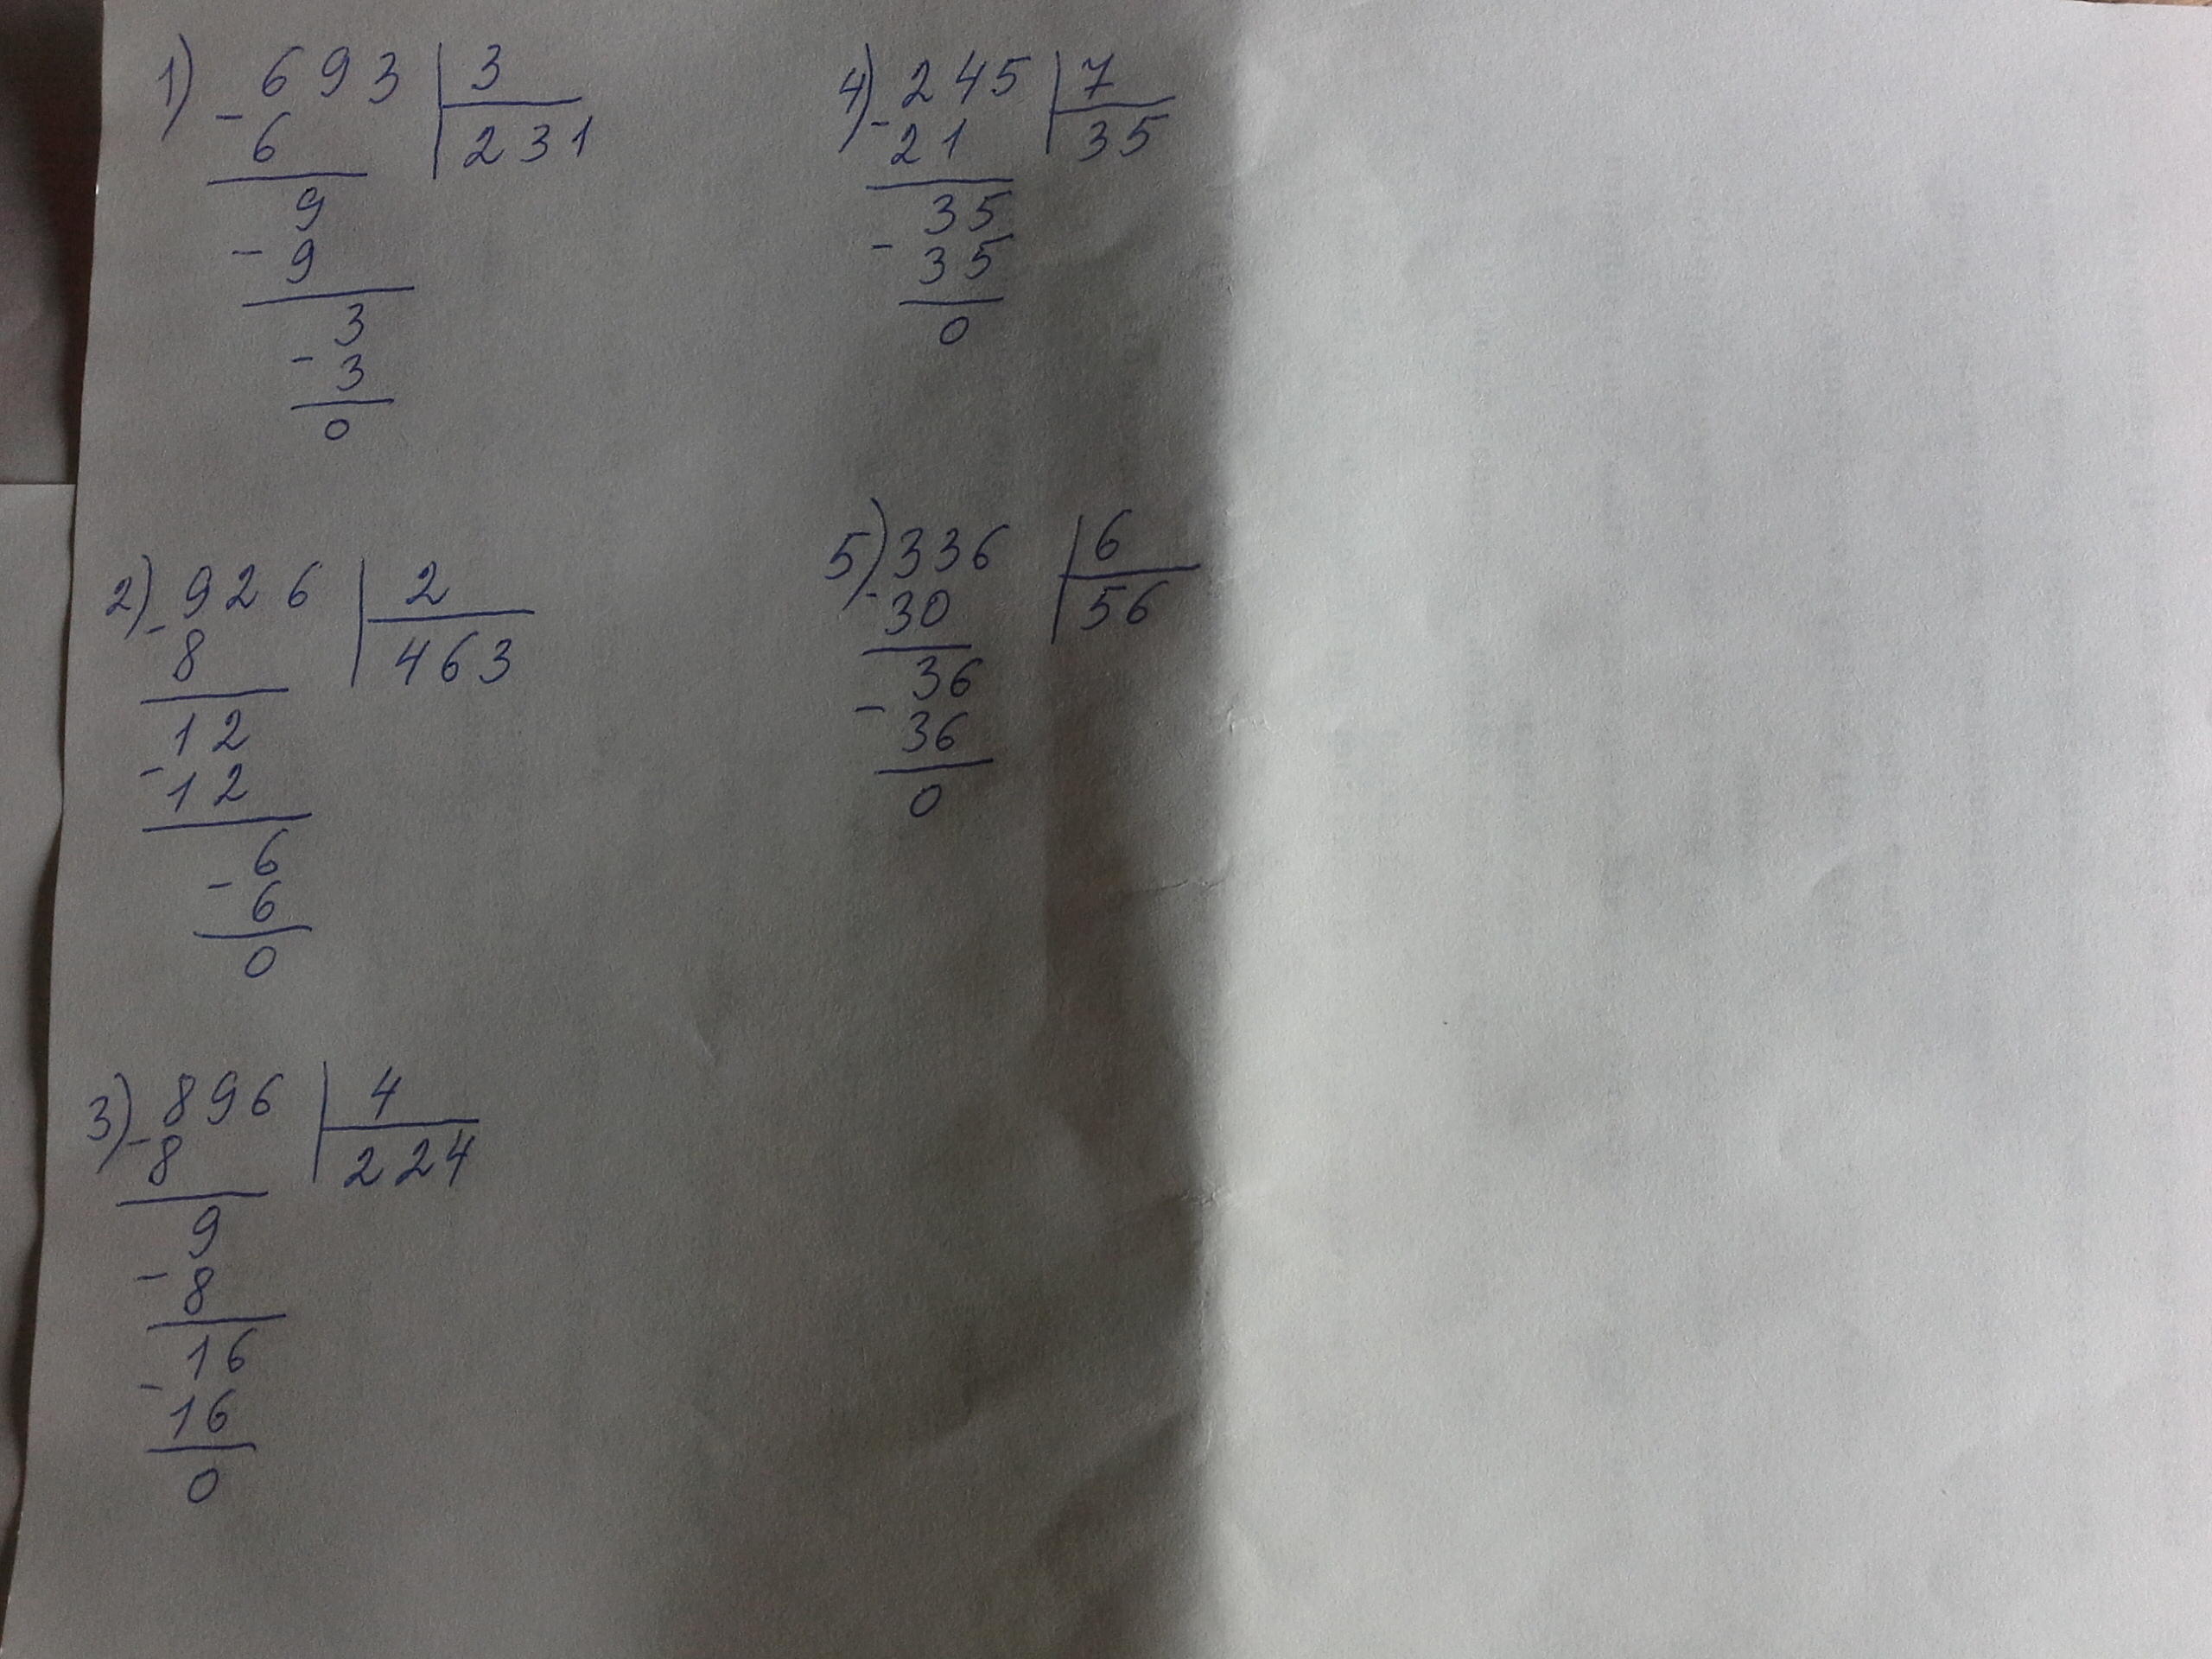 1) - 693 | 3
6 | 231
9
- 9
3
- 3
0
2) - 926 | 2
8 | 463
12
- 12
6
- 6
0
3) - 896 | 4
8 | 224
9
- 8
16
- 16
0
4) - 245 | 7
21 | 35
35
- 35
0
5) - 336 | 6
30 | 56
36
- 36
0